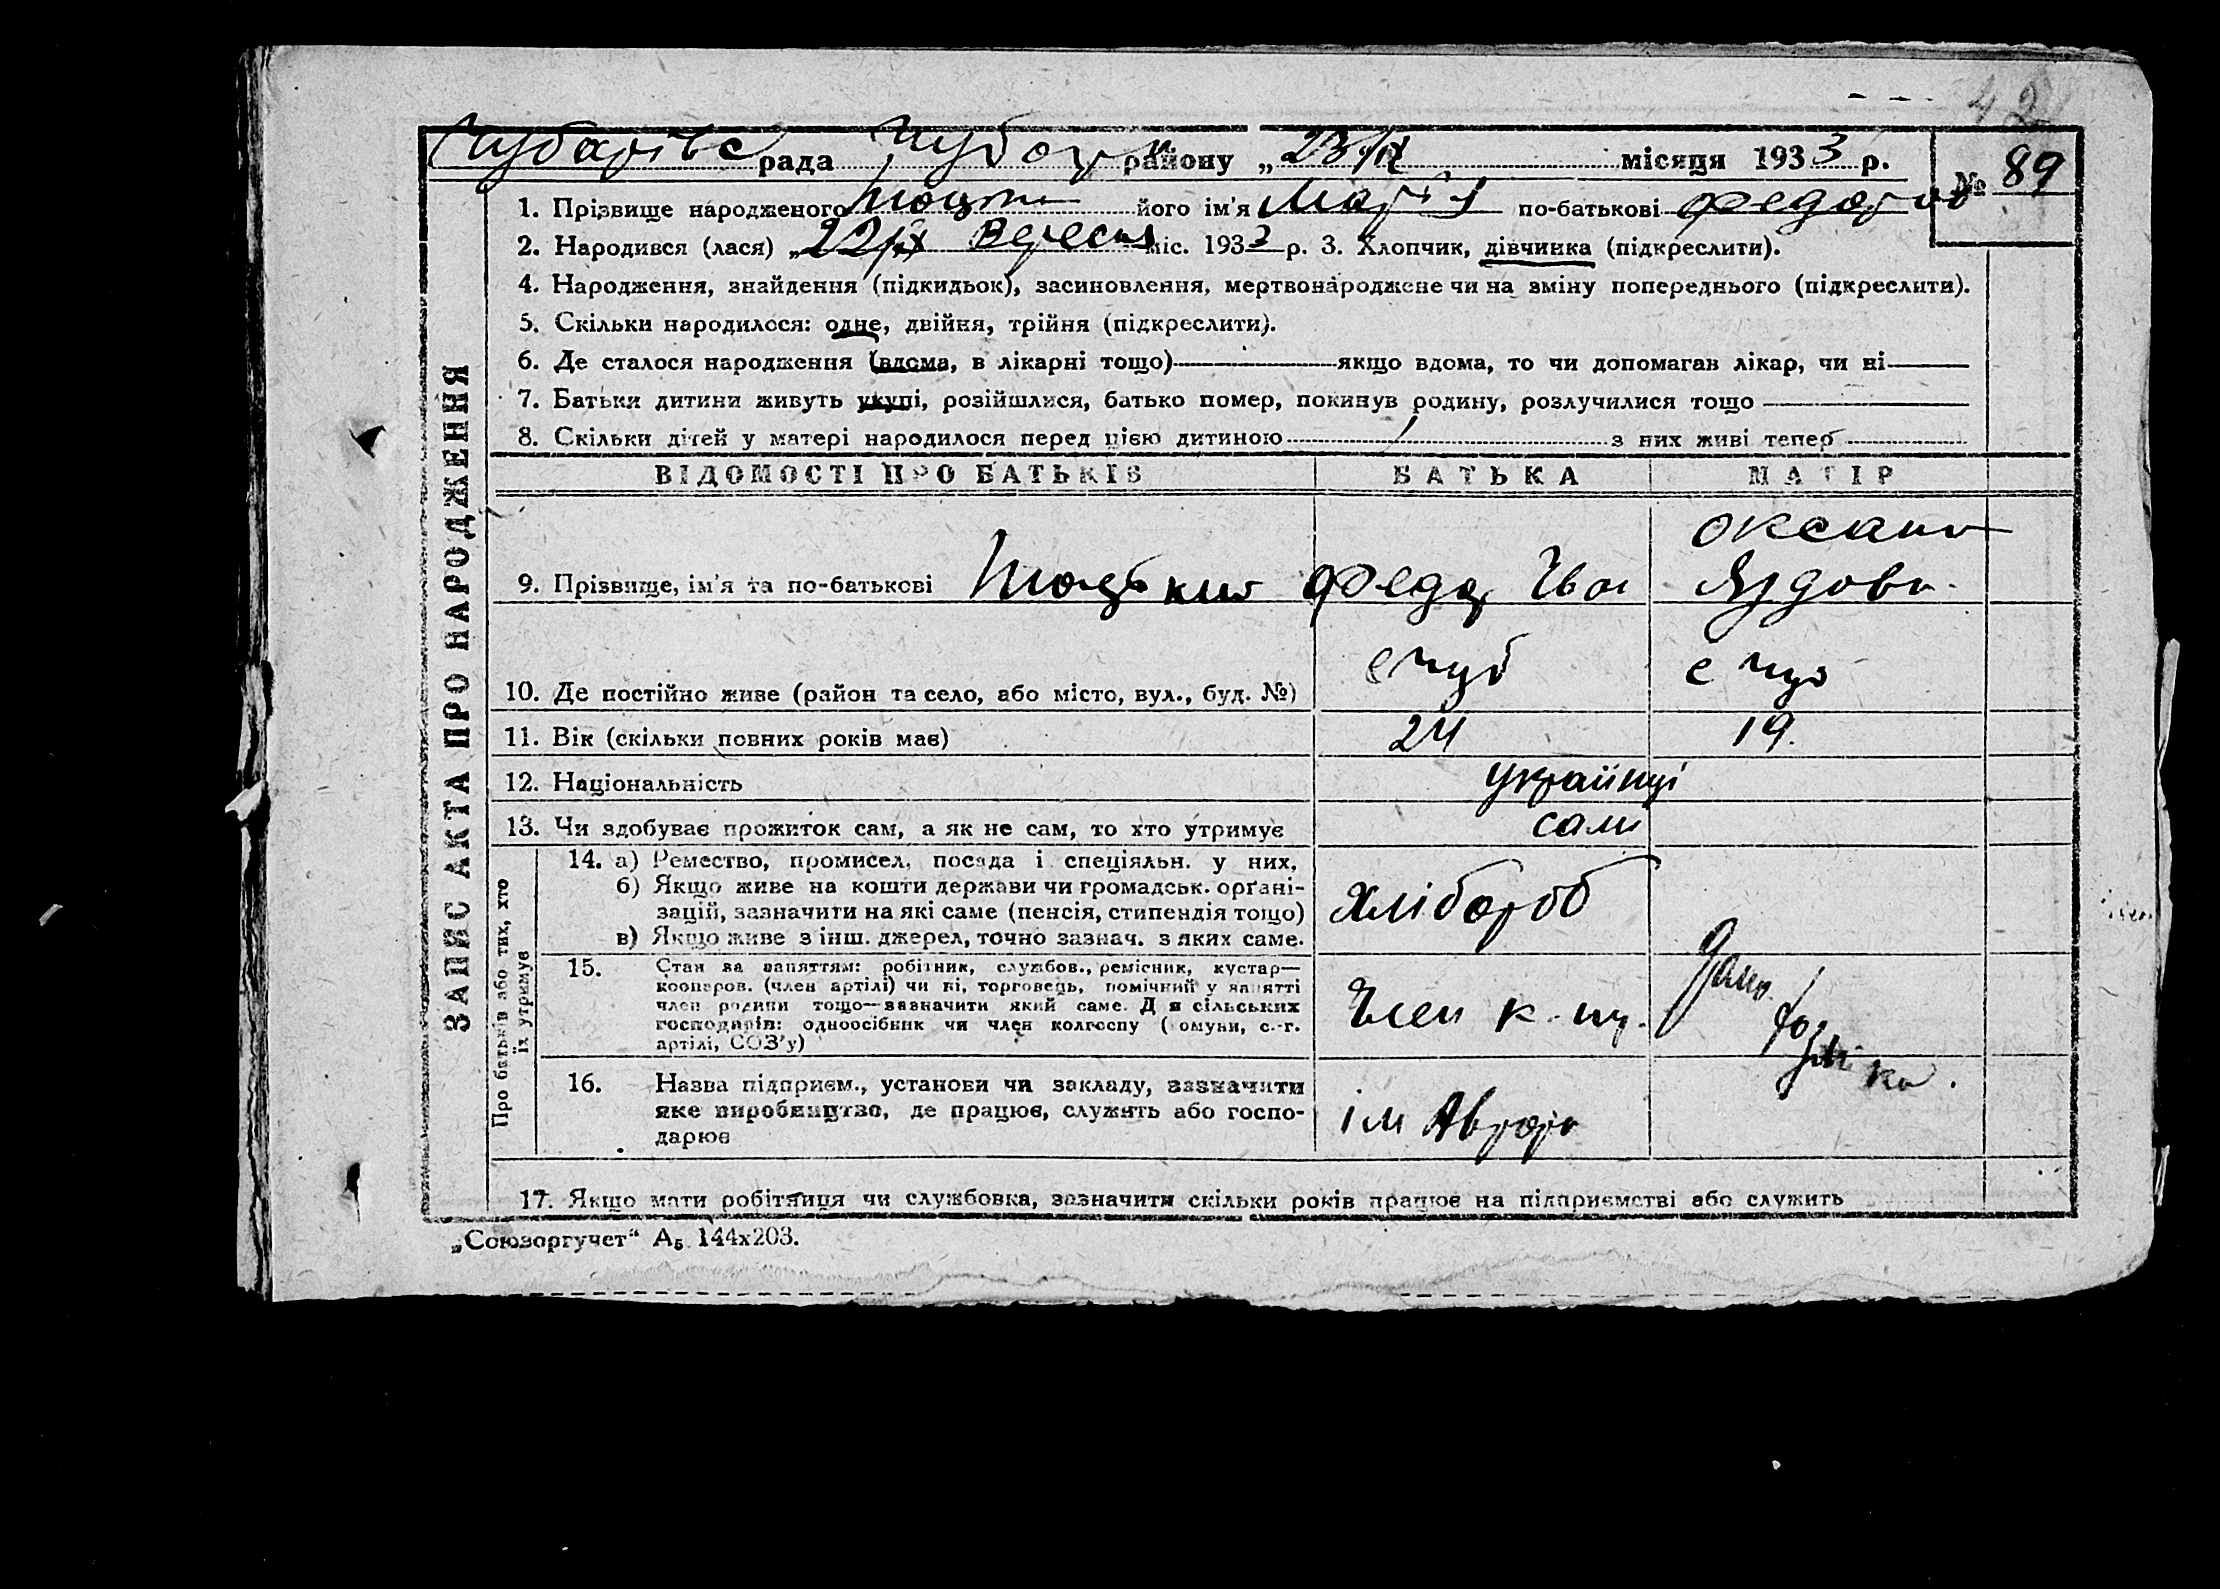 42
Чубарівс рада Чубар району „ 23/ІХ місяця 1933 р. № 89
1. Прізвище народженого його ім'я Марія по-батькові Федоров
2. Народився (лася) „ 22/ІХ Вересня міс. 1933 р. 3. Хлопчик, дівчинка (підкреслити).
4. Народження, знайдення (підкидьок), засиновлення, мертвонароджене чи на зміну попереднього (підкреслити).
5. Скільки народилося: одне, двійня, трійня (підкреслити).
6. Де сталося народження (вдома, в лікарні тощо) якщо вдома, то чи допомагав лікар, чи ні
7. Батьки дитини живуть укупі, розійшлися, батько помер, покинув родину, розлучилися тощо
8. Скільки дітей у матері народилося перед цією дитиною з них живі тепер
ЗАПИС АКТА ПРО НАРОДЖЕННЯ
ВІДОМОСТІ ПРО БАТЬКІВ БАТЬКА МАТІР
9. Прізвище, ім'я та по-батькові Федор Іван Оксана
10. Де постійно живе (район та село, або місто, вул., буд. №) с Чуб с Чуб
11. Вік (скільки повних років має) 24 19.
12. Національність українці
13. Чи здобуває прожиток сам, а як не сам, то хто утримує самі
Про батьків або тих, хто
їх утримує
14. а) Ремество, промисел, посада і спеціяльн. у них,
б) Якщо живе на кошти держави чи громадськ. орґані-
зацій, зазначити на які саме (пенсія, стипендія тощо)
в) Якщо живе з інш. джерел, точно зазнач. з яких саме.
Хлібороб
15. Стан за заняттям: робітник, службов., ремісник, кустар—
кооперов. (член артілі) чи ні, торговець, помічний у занятті
член родини тощо—зазначити який саме. Для сільських
господарів: одноосібник чи член колгоспу (комуни, с.-г.
артілі, СОЗ'у)
Член к.
Дом
16. Назва підприєм., установи чи закладу, зазначити
яке виробництво, де працює, служить або госпо-
дарює
ім Аврора
17. Якщо мати робітниця чи службовка, зазначити скільки років працює на підприємстві або служить
„Союзоргучет“ А₅ 144х203.